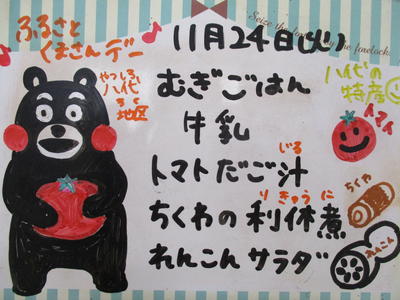 ふるさと
くまさんデー
11月24日(火)
やつしろ
八代
ちく
地区
むぎごはん
牛乳
トマトだご汁
じる
ちくわの利休煮
りきゅうに
れんこんサラダ
八代の
特産
トマト
ちくわ
れんこん